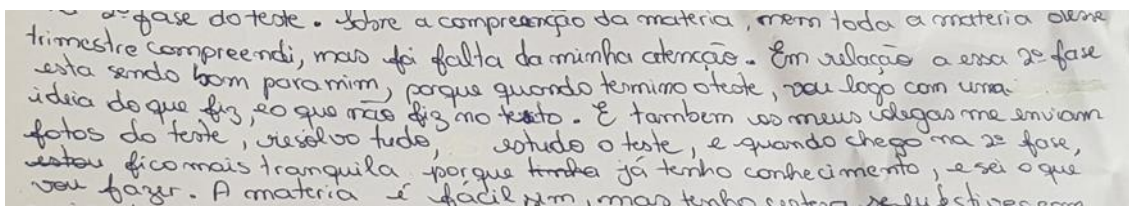 2ª fase do teste. Sobre a compreenção da materia, nem toda a materia desse
trimestre compreendi, mas foi falta da minha atenção. Em relação a essa 2ª fase
esta sendo bom para mim, porque quando termino o teste, vou logo com uma
ideia do que fiz, e o que não fiz no testo. E tambem os meus colegas me enviam
fotos do teste, resolvo tudo, estudo o teste, e quando chego na 2ª fase,
estou fico mais tranquila porque tinha já tenho conhecimento, e sei o que
vou fazer. A materia é fácil sim, mas tenho